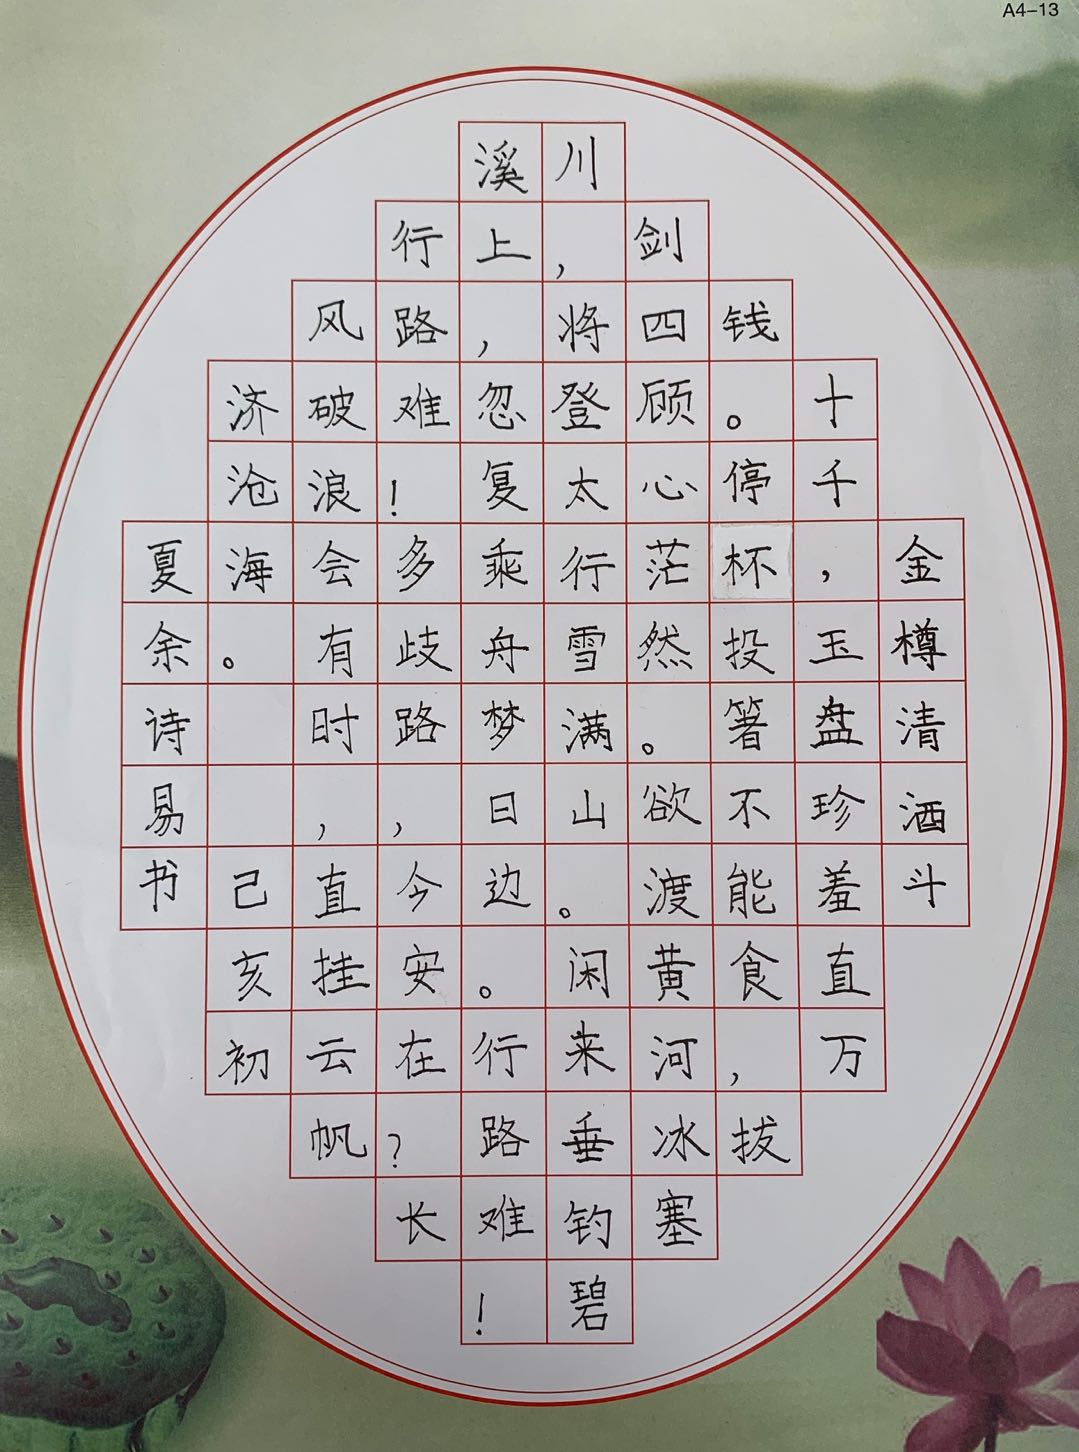 A4-13
金樽清酒斗
十千，玉盘珍羞直万
钱。停杯投箸不能食，拔
剑四顾心茫然。欲渡黄河冰塞
川，将登太行雪满山。闲来垂钓碧
溪上，忽复乘舟梦日边。行路难！
行路难！多歧路，今安在？长
风破浪会有时，直挂云帆
济沧海。 己亥初
夏余诗易书